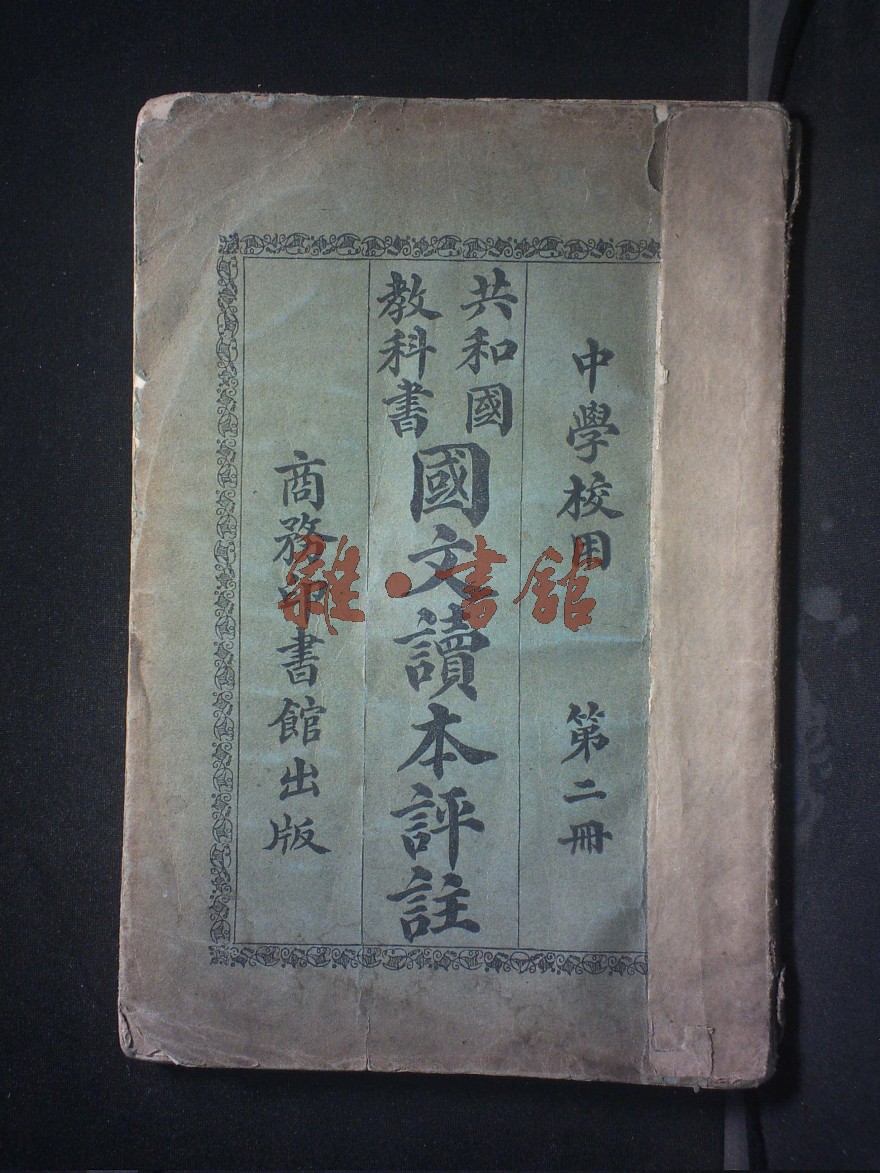 中學校用　第二冊
共和國
教科書
國文讀本評註
商務印書館出版
雜·書館